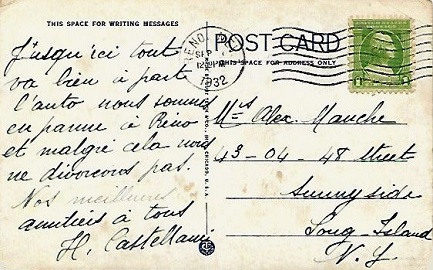 THIS SPACE FOR WRITING MESSAGES
Jusqu'ici tout
va bien à part
l'auto nous sommes
en panne à Reno
et malgré cela nous
ne divorçons pas.
Nos meilleures
amitiés à tous
H. Castellani
RENO
SEP
12
1932
POST CARD
THIS SPACE FOR ADDRESS ONLY
CHICAGO, U.S.A.
1
Mrs Alex. Manche
43-04-48 street
Sunnyside
Long-Island
N.Y.